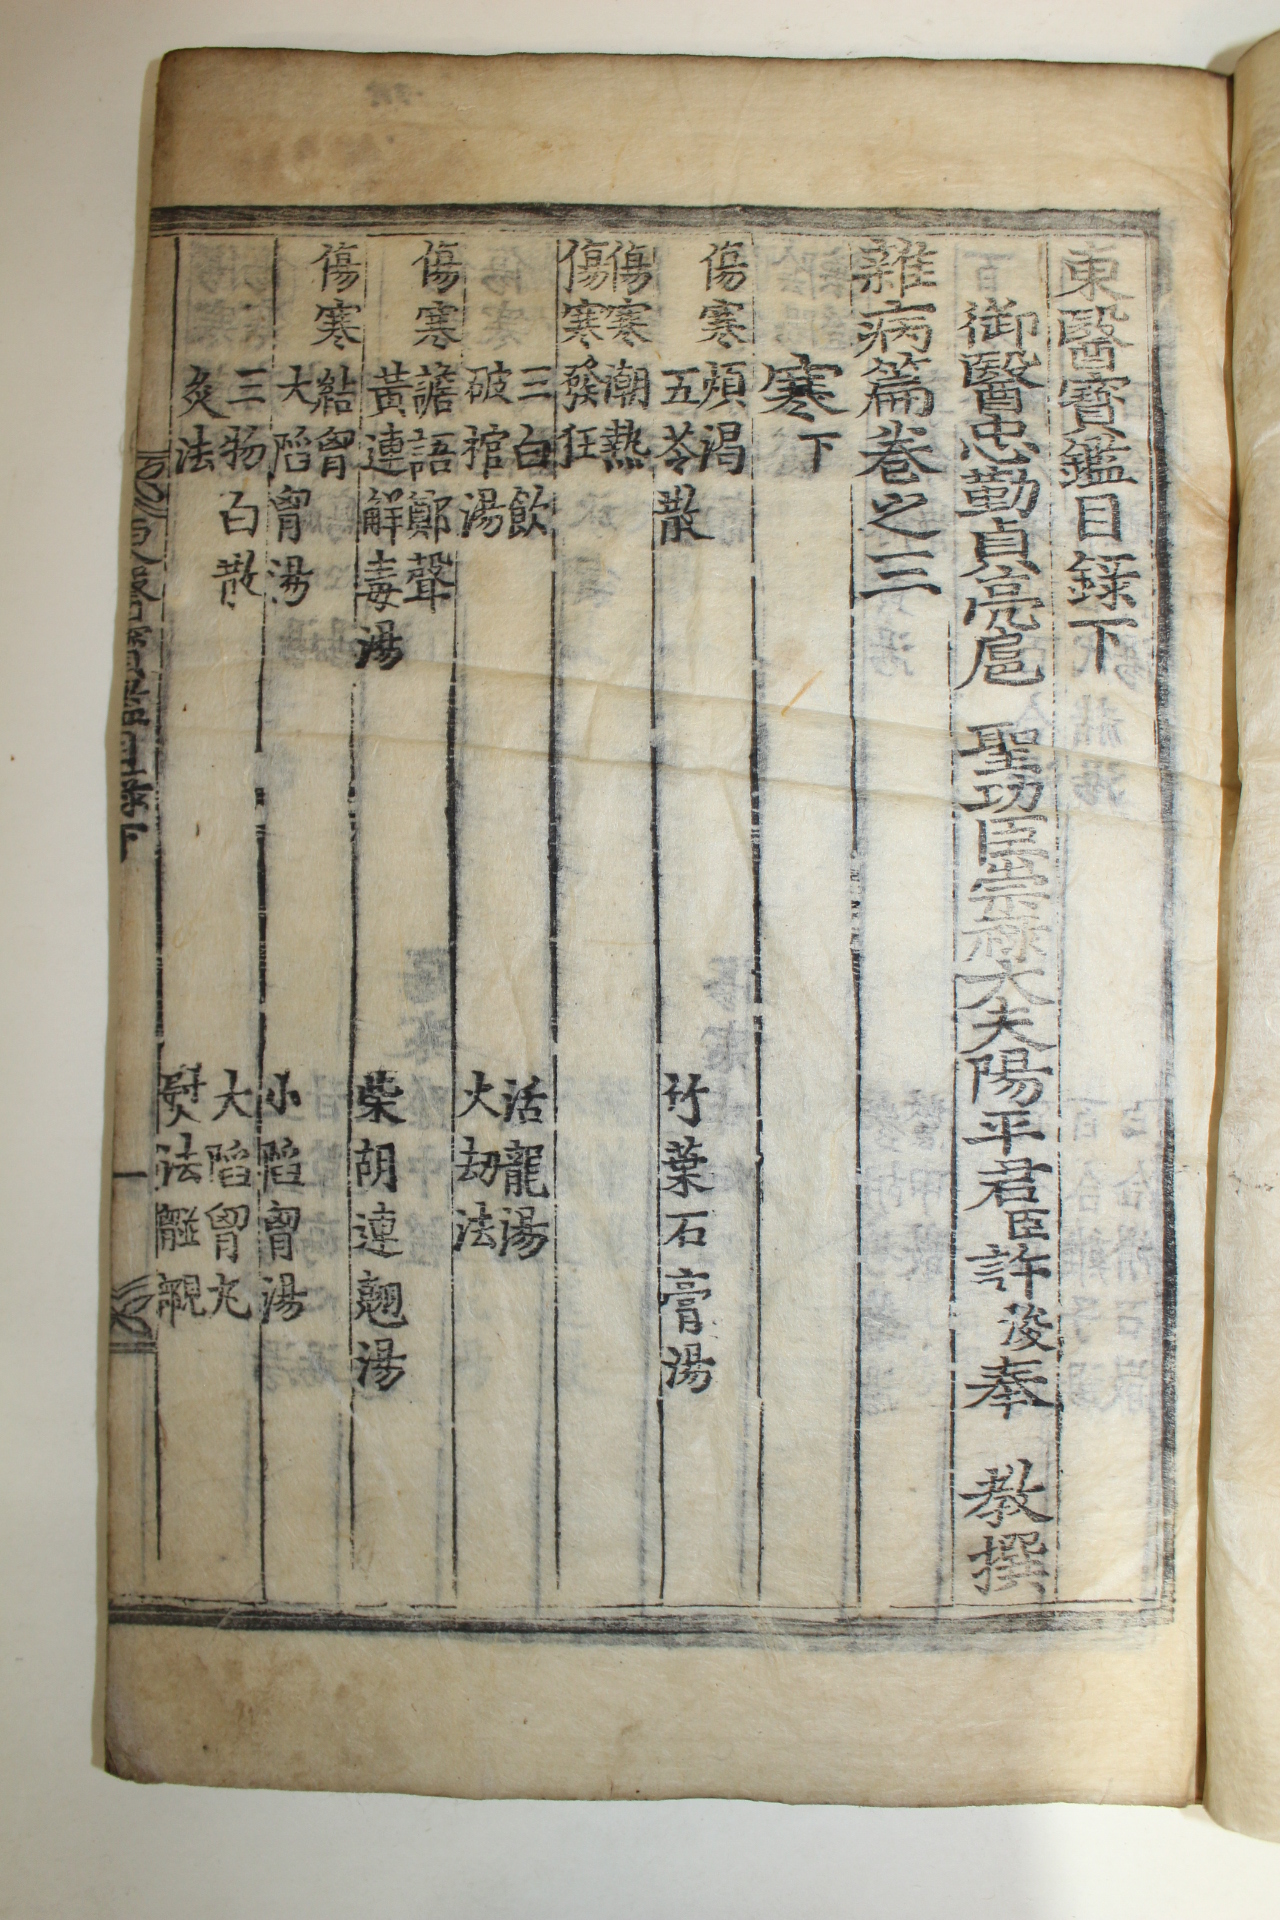 東醫寶鑑目錄下
御醫忠勤貞亮扈 聖功臣崇祿大夫陽平君臣許浚奉 教撰
雜病篇卷之三
寒下
傷寒煩渴
五苓散 竹葉石膏湯
傷寒潮熱
傷寒發狂
三白飮 活龍湯
破棺湯 火劫法
傷寒譫語鄭聲
黃連解毒湯 柴胡連翹湯
傷寒結胷
大陷胷湯 小陷胷湯
三物白散 大陷胷丸
灸法 熨法
東醫寶鑑目錄下 一